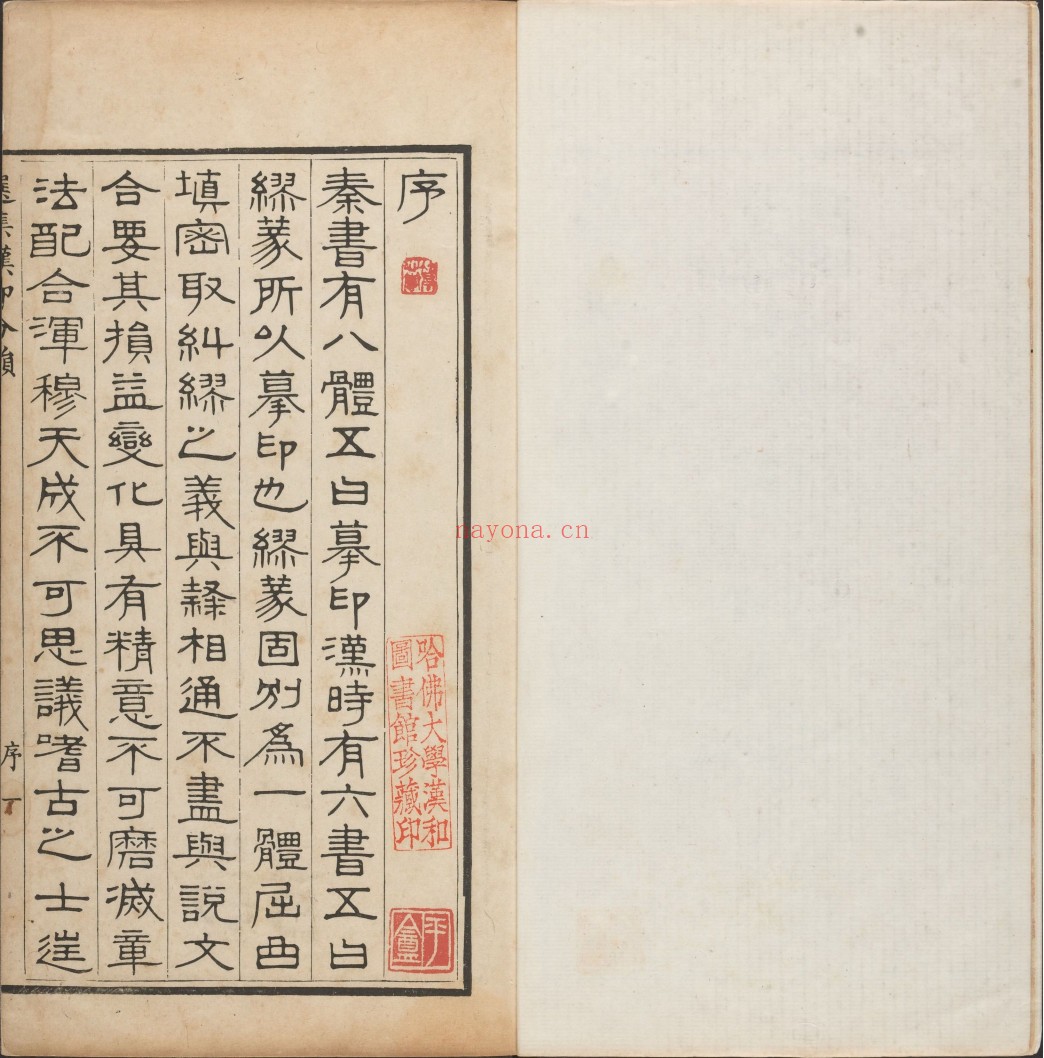 序
秦書有八體五曰摹印漢時有六書五曰
繆篆所以摹印也繆篆固別為一體屈曲
填密取糾繆之義與隸相通不盡與說文
合要其損益變化具有精意不可磨滅章
法配合渾穆天成不可思議嗜古之士往
選集漢印分韻
序
一
哈佛大學漢和
圖書館珍藏印
平盦
nayona.cn